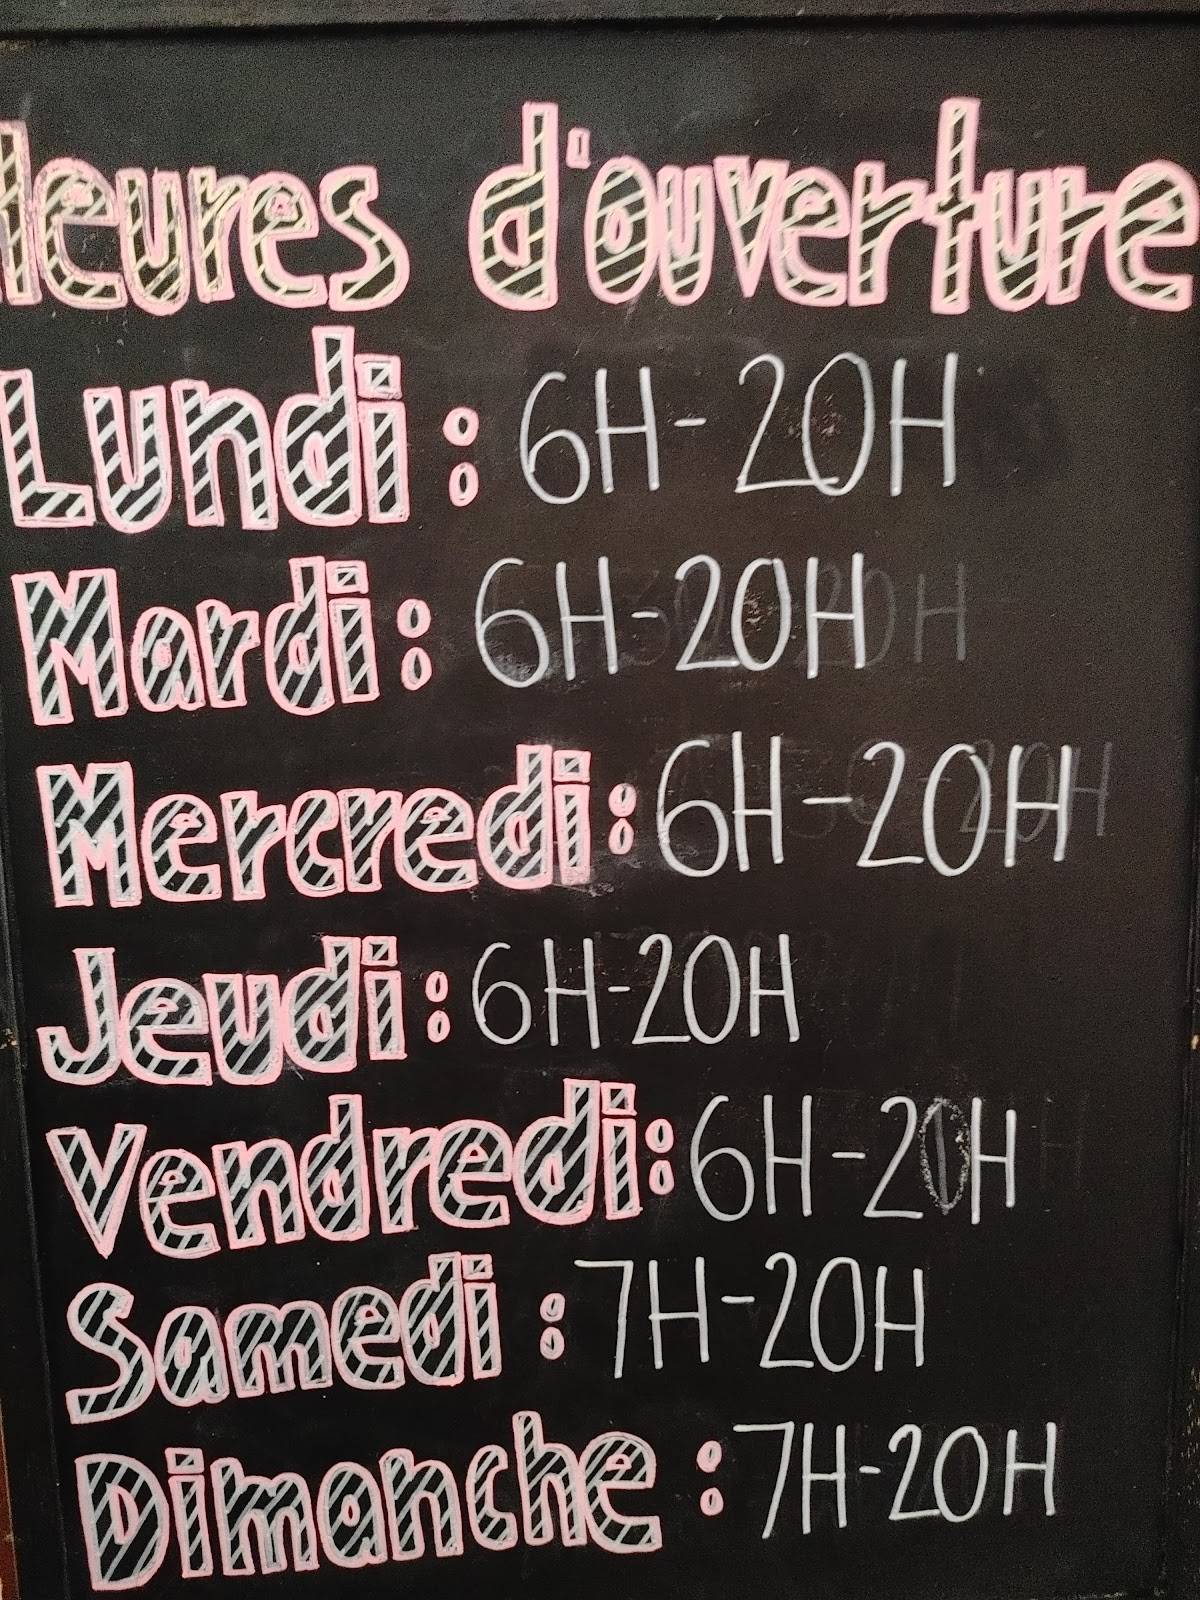 Heures d'ouverture
Lundi : 6H - 20H
Mardi : 6H - 20H
Mercredi : 6H - 20H
Jeudi : 6H - 20H
Vendredi : 6H - 20H
Samedi : 7H - 20H
Dimanche : 7H - 20H